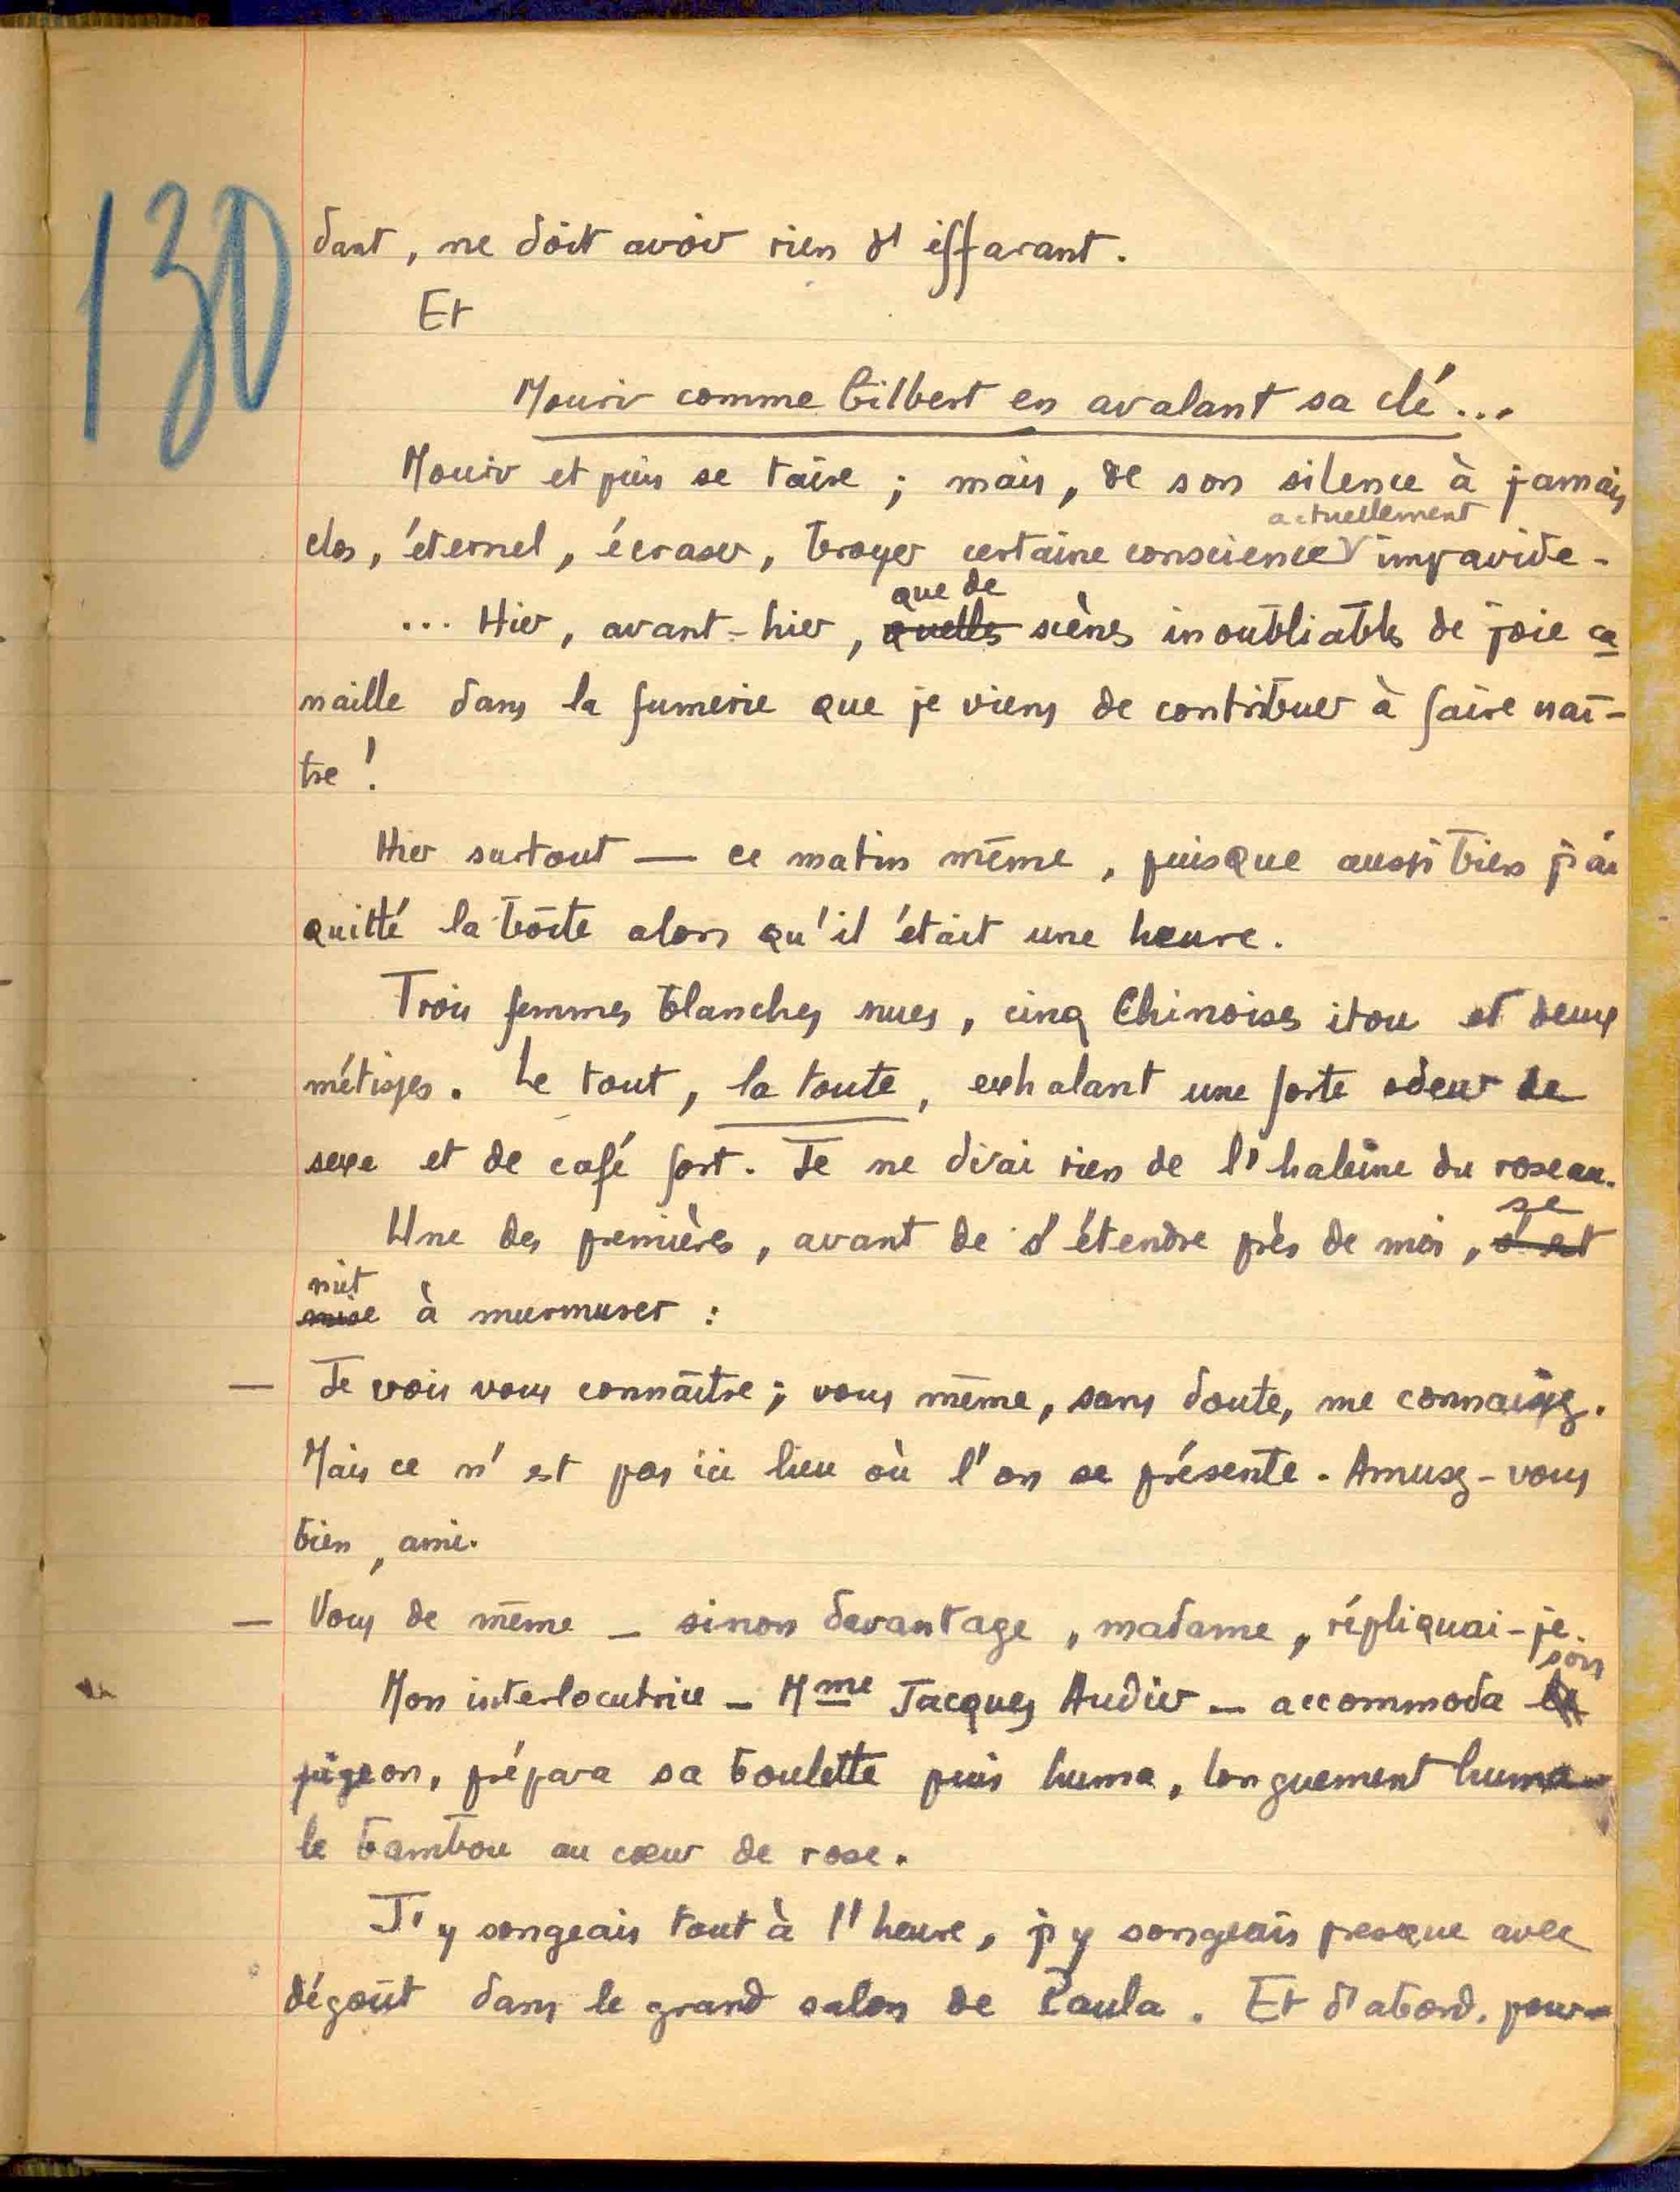 130
dant, ne doit avoir rien d'effarant.
Et
Mourir comme Gilbert en avalant sa clé...
Mourir et puis se taire ; mais, de son silence à jamais
actuellement
clos, éternel, écraser, broyer certaine conscience impavide.
que de
... Hier, avant-hier, quelles scènes inoubliables de joie ca
naille dans la fumerie que je viens de contribuer à faire naî-
tre !
Hier surtout — ce matin même, puisque aussi bien j'ai
quitté la boîte alors qu'il était une heure.
Trois femmes blanches nues, cinq Chinoises itou et deux
métisses. Le tout, la toute, exhalant une forte odeur de
sexe et de café fort. Je ne dirai rien de l'haleine du roseau.
se
Une des premières, avant de s'étendre près de moi, s'est
mit
mise à murmurer :
— Je crois vous connaître ; vous même, sans doute, me connaissez.
Mais ce n'est pas ici lieu où l'on se présente. Amusez-vous
bien, ami.
— Vous de même — sinon davantage, madame, répliquai-je.
son
Mon interlocutrice — Mme Jacques Audier — accommoda le
pigeon, prépara sa boulette puis huma, longuement huma
le bambou au cœur de rose.
J'y songeais tout à l'heure, j'y songeais presque avec
dégoût dans le grand salon de Paula. Et d'abord, pour-